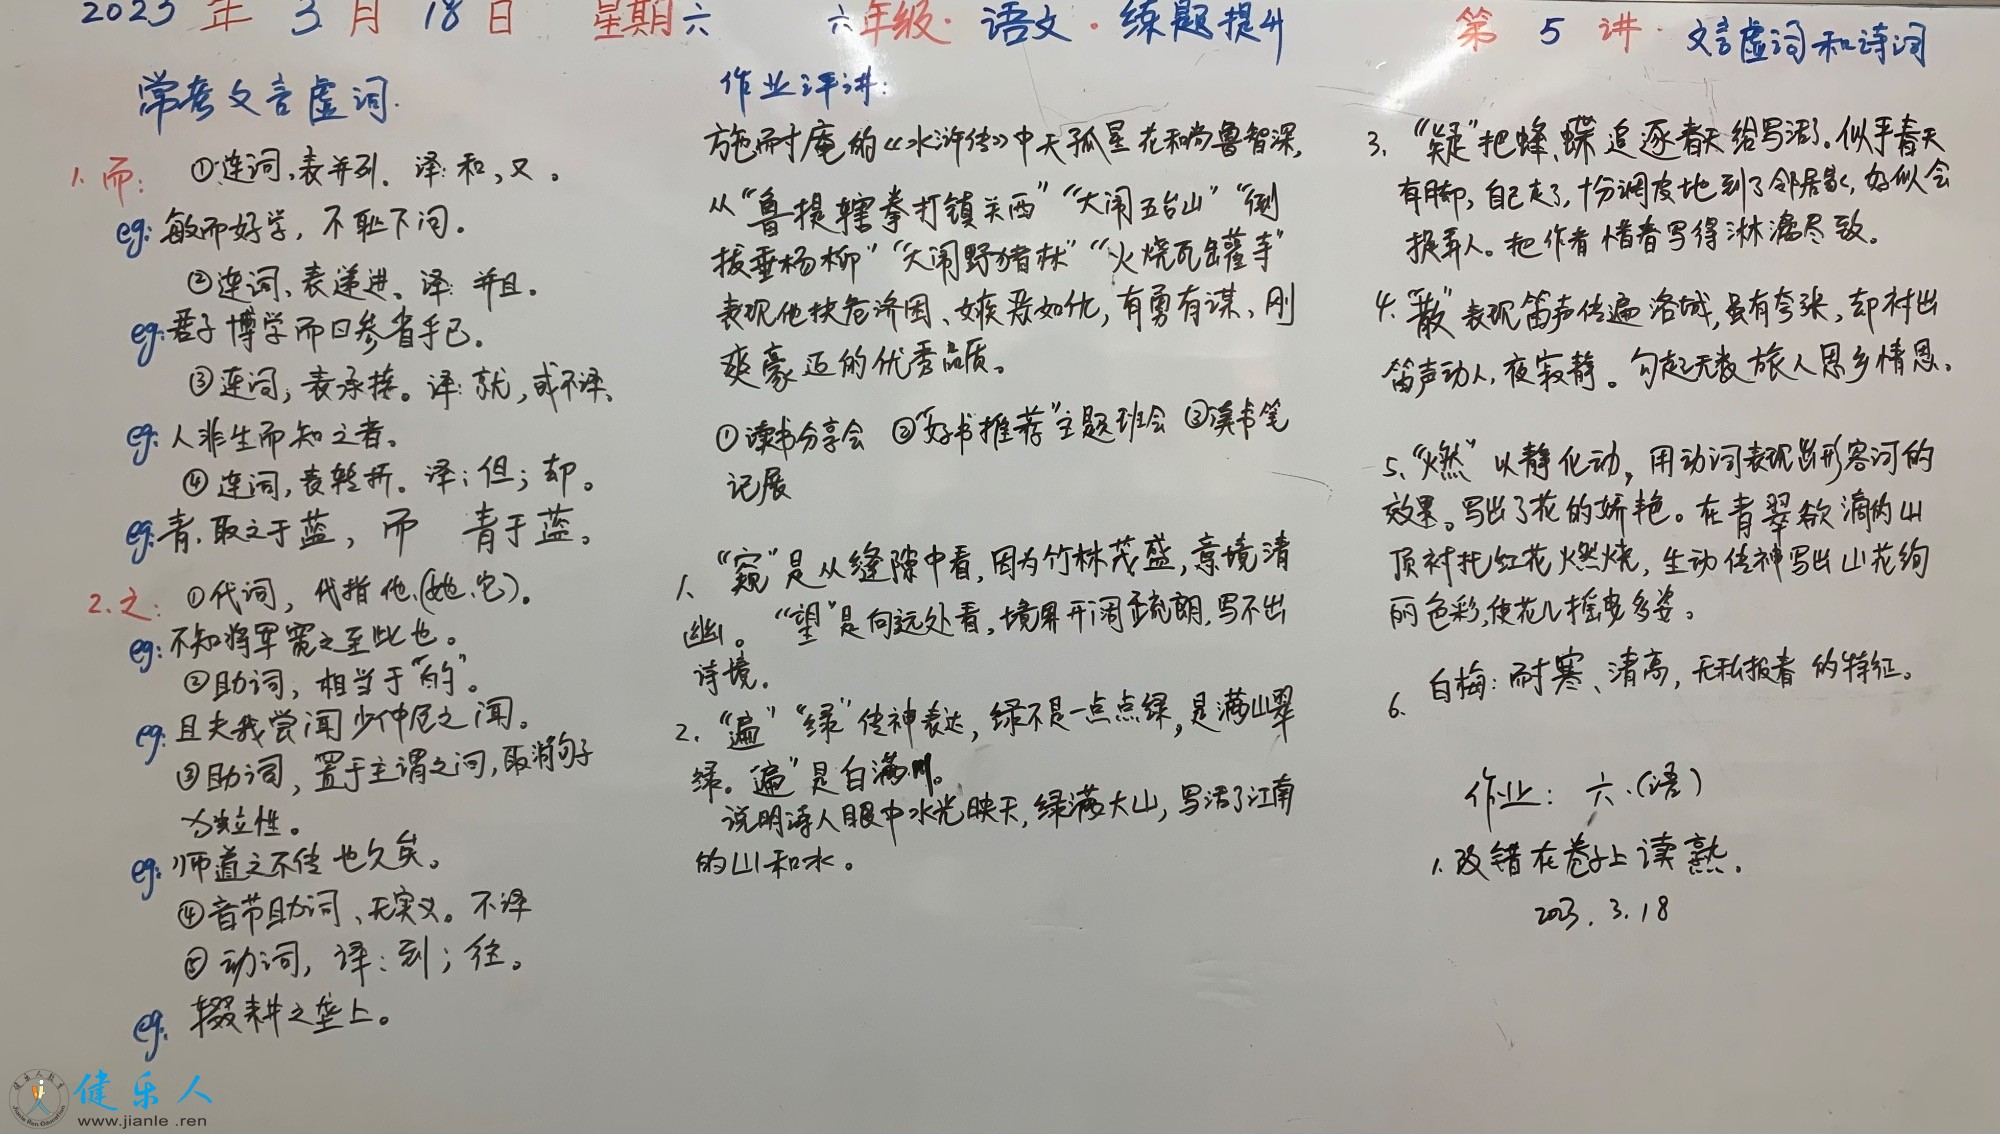 2023年3月18日 星期六 六年级·语文·练题提升 第5讲·文言虚词和诗词
常考文言虚词.
1.而: ①连词,表并列. 译:和,又。
eg:敏而好学，不耻下问。
②连词、表递进、译:并且。
eg:君子博学而日参省乎己。
③连词，表承接。译:就,或不译、
eg:人非生而知之者。
④连词,表转折。译:但;却。
eg:青,取之于蓝，而 青于蓝。
2.之: ①代词，代指他、(她、它)。
eg:不知将军宽之至此也。
②助词，相当于"的"。
eg:且夫我尝闻少仲尼之闻。
③助词，置于主谓之间,取消句子
独立性。
eg:师道之不传也久矣。
④音节助词、无实义。不译
⑤动词，译:到;往。
eg. 辍耕之垄上。
作业评讲:
施耐庵的《水浒传》中天孤星花和尚鲁智深,
从"鲁提辖拳打镇关西""大闹五台山""倒
拔垂杨柳""大闹野猪林""火烧瓦罐寺"
表现他扶危济困、嫉恶如仇,有勇有谋、刚
爽豪迈的优秀品质。
①读书分享会 ②"好书推荐"主题班会 ③读书笔
记展
1. "窥"是从缝隙中看,因为竹林茂盛,意境清
幽。 "望"是向远处看,境界开阔疏朗,写不出
诗境.
2. "遍""绿"传神表达，绿不是一点点绿,是满山翠
绿。遍"是白满川。
说明诗人眼中水光映天,绿满大山,写活了江南
的山和水。
3. "疑"把蜂、蝶追逐春天给写活了。似乎春天
有脚，自己走了,十分调皮地到了邻居家,好似会
捉弄人。把作者惜春写得淋漓尽致。
4."散"表现笛声传遍洛城,虽有夸张,却衬出
笛声动人,夜寂静。勾起无数旅人思乡情思、
5、"燃"以静化动，用动词表现出形容词的
效果。写出了花的娇艳。在青翠欲滴的山
顶衬托红花燃烧,生动传神写出山花绚
丽色彩,使花儿摇曳多姿。
6. 白梅:耐寒、清高,无私报春的特征。
作业: 六.(语)
1.改错在卷子上读熟.
2023.3.18
健乐人
www.jianle .ren